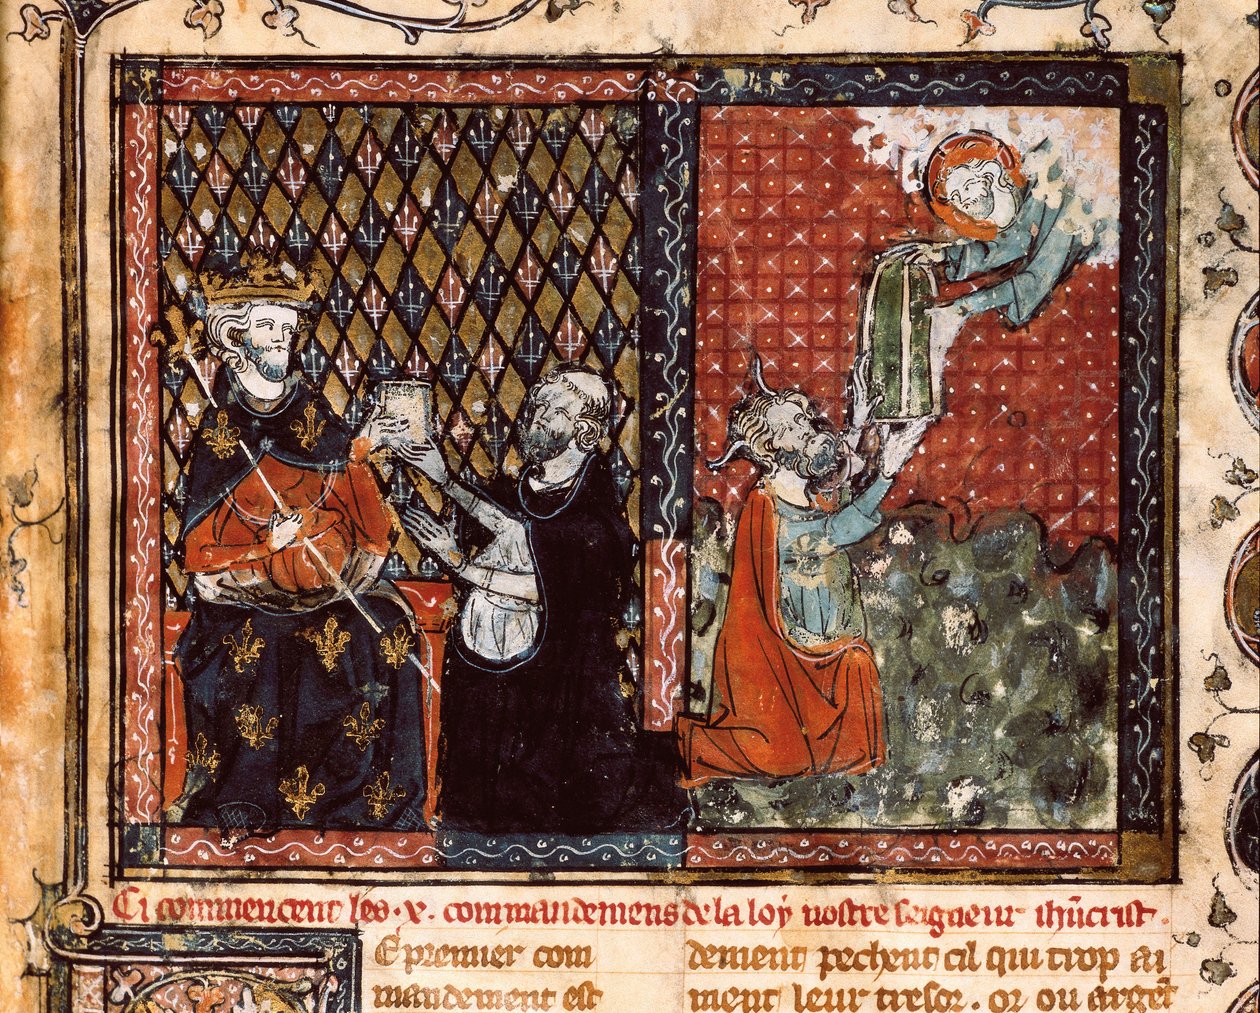 Ci commencent les .x. commandemens de la loy nostre seigneur ihūcrist.
E premier com
mandement est
dement pechent cil qui trop ai
ment leur tresor. or ou argēt